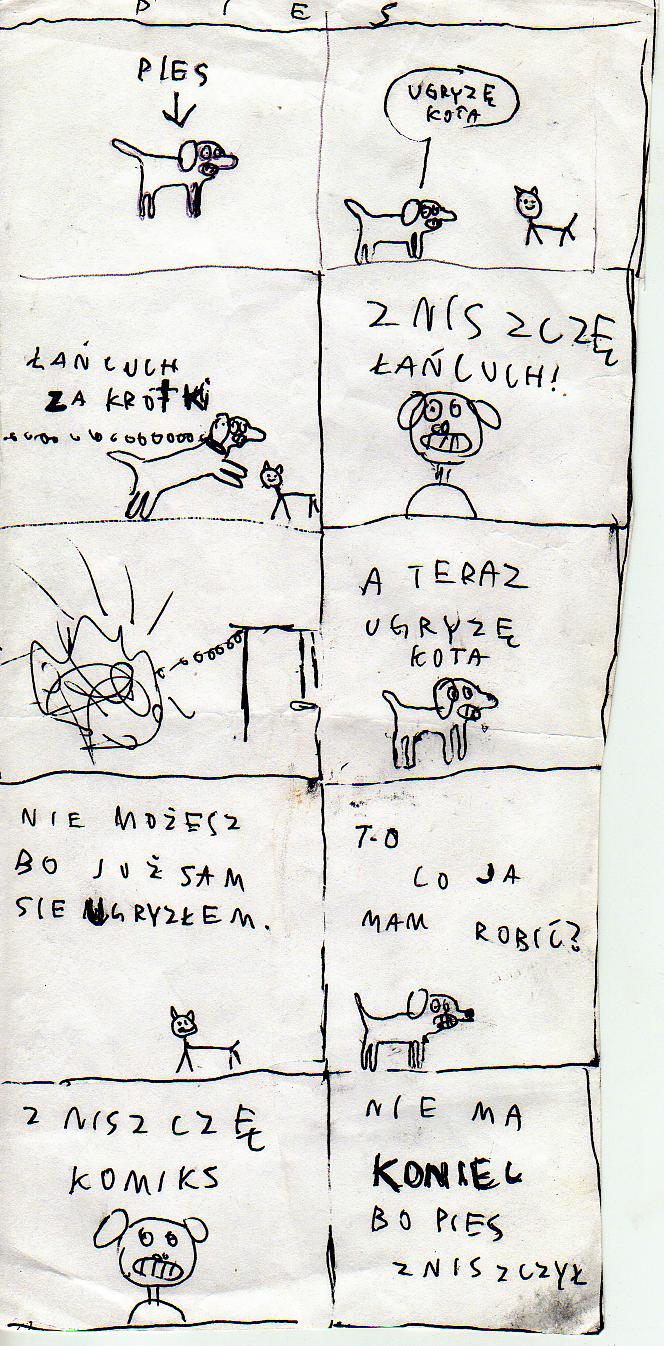 PIES
PIES
UGRYZĘ
KOTA
ŁAŃCUCH
ZA KRÓTKI
ZNISZCZĘ
ŁAŃCUCH!
A TERAZ
UGRYZĘ
KOTA
NIE MOŻESZ
BO JUŻ SAM
SIE UGRYZŁEM.
TO
CO JA
MAM ROBIĆ?
ZNISZCZĘ
KOMIKS
NIE MA
KONIEC
BO PIES
ZNISZCZYŁ